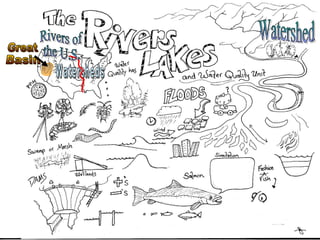 The
RIVERS
LAKES
and Water Quality Unit
Rivers of
the U.S.
Watersheds
Great
Basin
Watershed
Water
Quality has
FLOODS
Swamp or Marsh
Wetlands
DAMS
+'s
-'s
Salmon
Simulation
Fashion
a
Fish